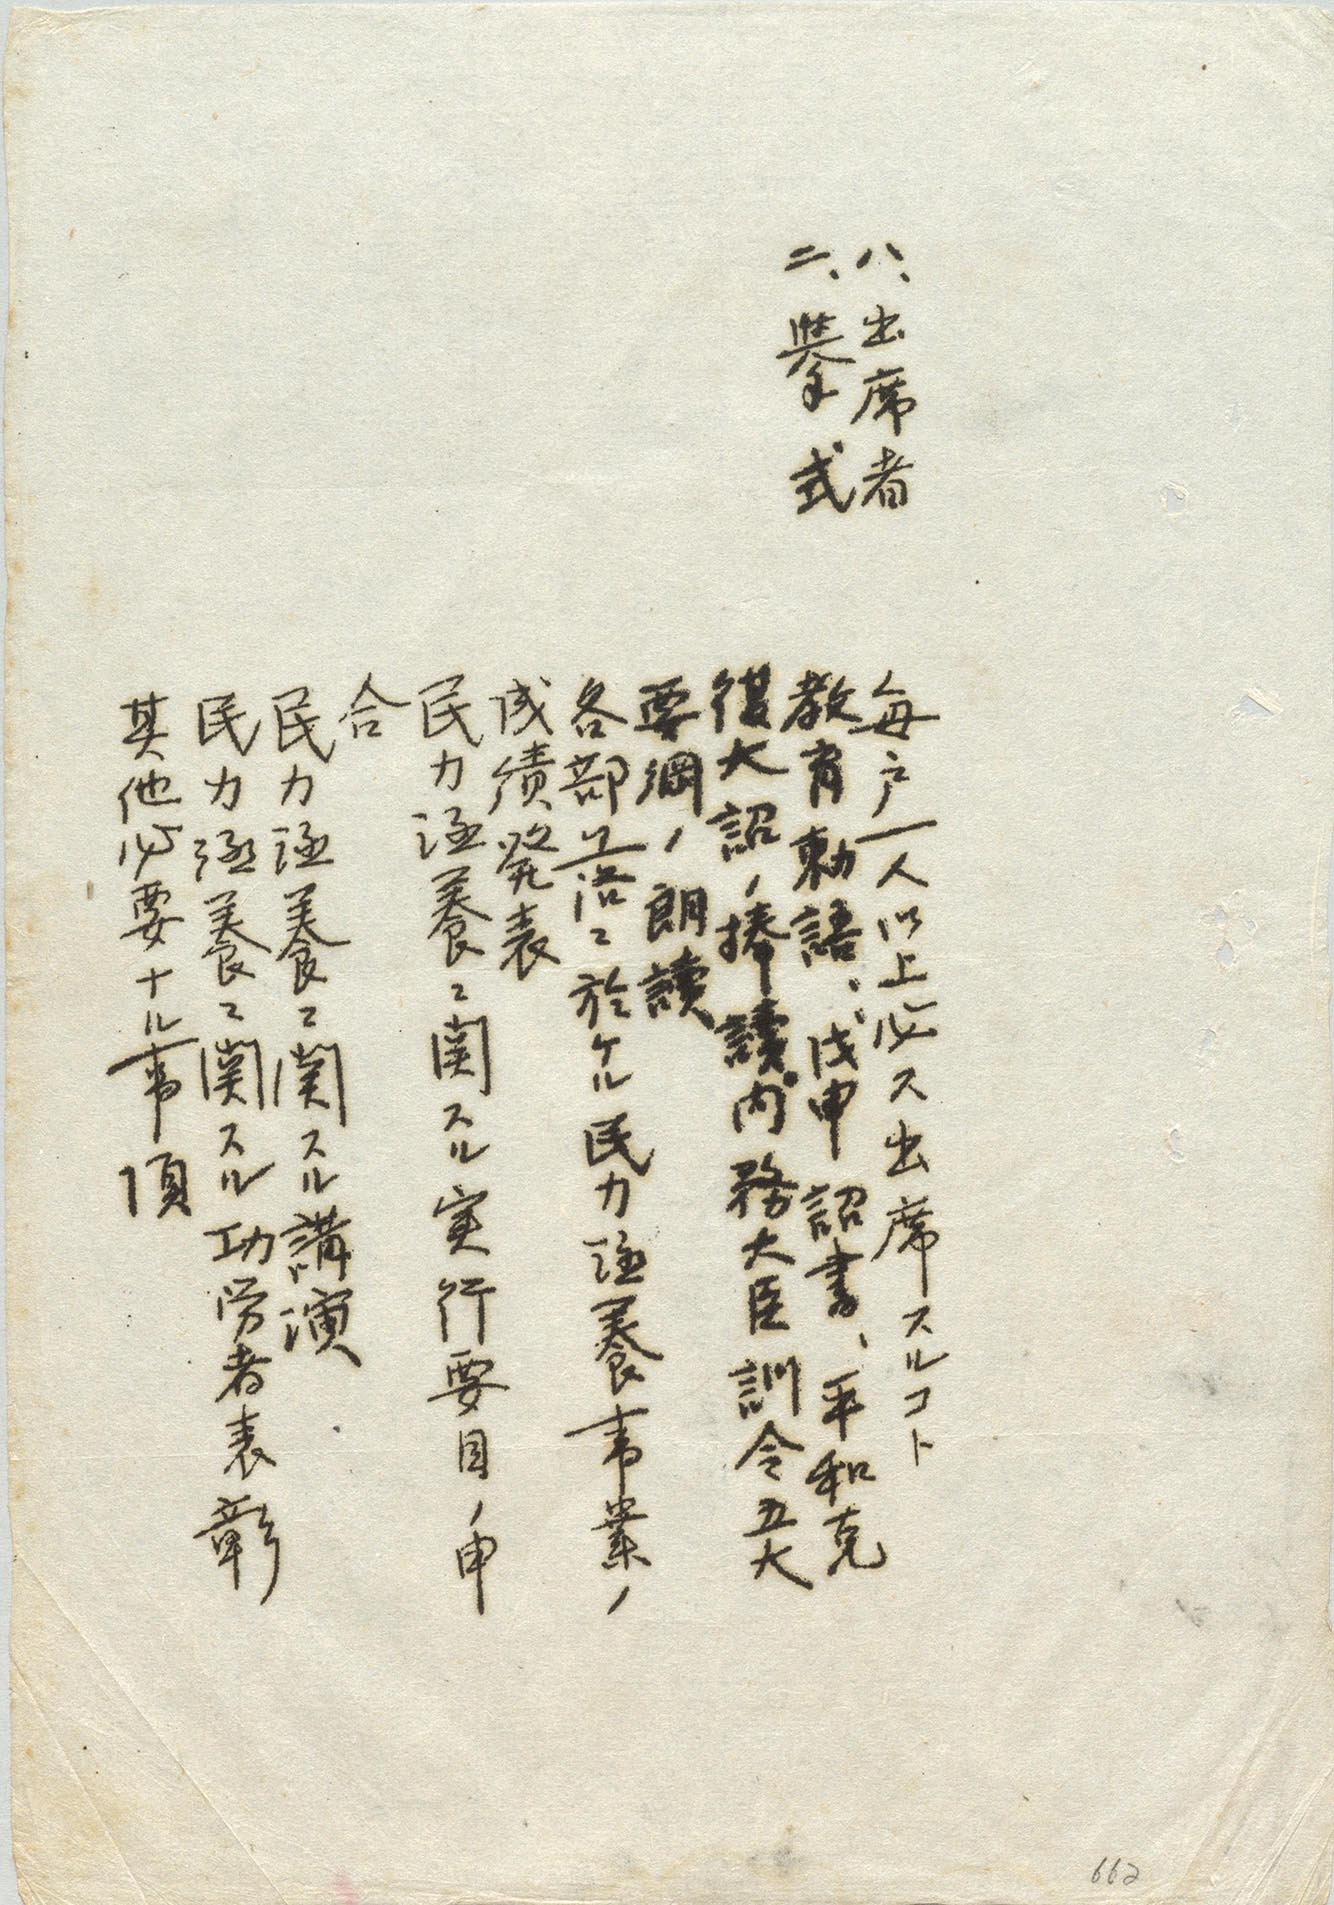 ハ、出席者
毎戸一人以上必ス出席スルコト
ニ、挙式
教育勅語、戊申詔書、平和克
復大詔ノ捧読内務大臣訓令五大
要綱ノ朗讀
各部落ニ於ケル民力涵養事業ノ
成績発表
民力涵養ニ関スル実行要目ノ申
合
民力涵養ニ関スル講演
民力涵養ニ関スル功労者表彰
其他必要ナル事項
662